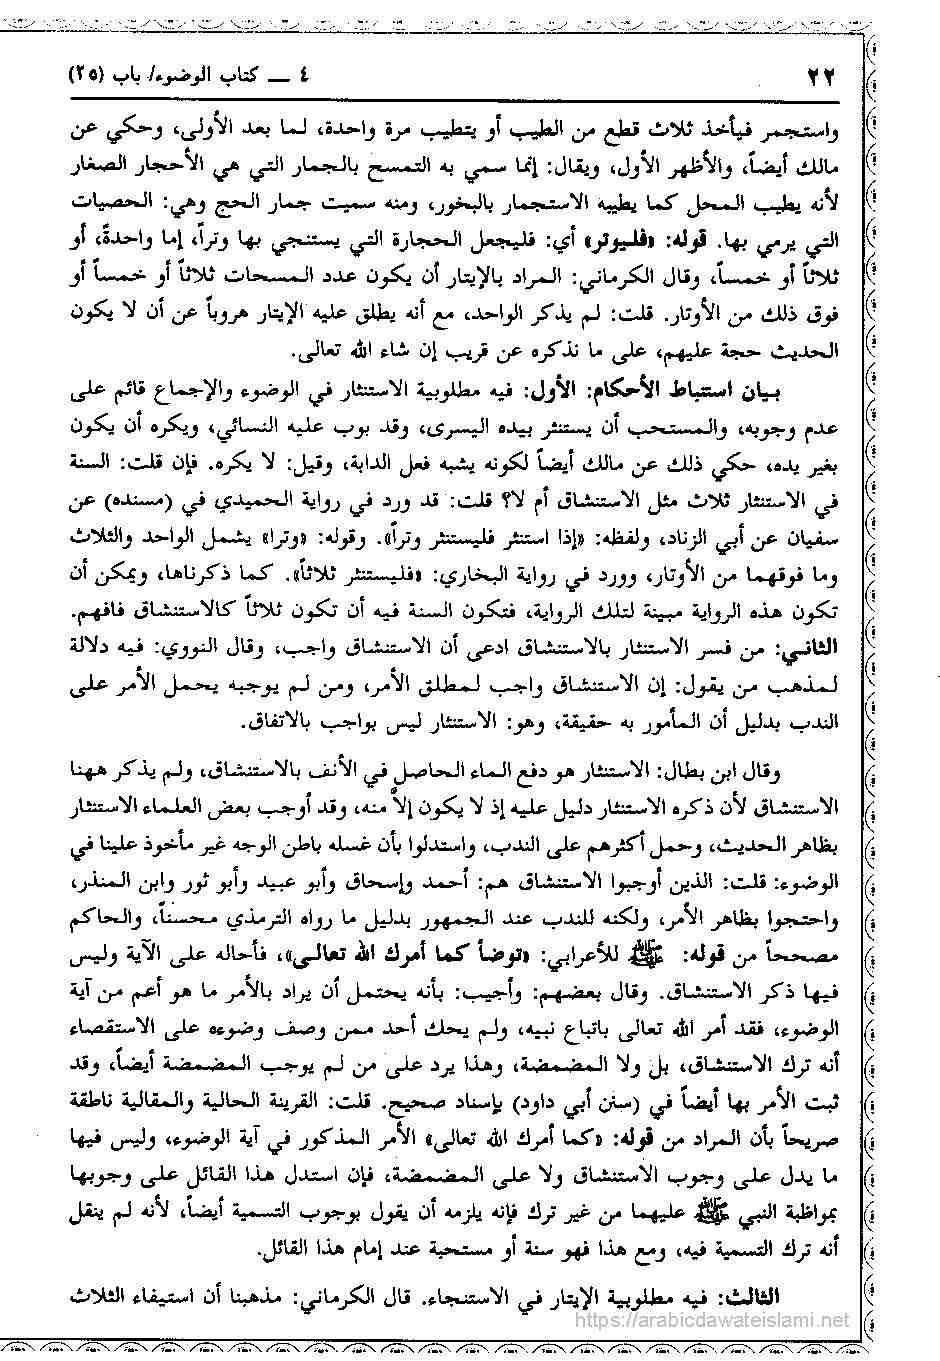 ٢٢
٤ ــ كتاب الوضوء/ باب (٢٥)
واستجمر فيأخذ ثلاث قطع من الطيب أو يتطيب مرة واحدة، لما بعد الأولى، وحكي عن
مالك أيضاً، والأظهر الأول، ويقال: إنما سمي به التمسح بالجمار التي هي الأحجار الصغار
لأنه يطيب المحل كما يطيبه الاستجمار بالبخور، ومنه سميت جمار الحج وهي: الحصيات
التي يرمي بها. قوله: «فليوتر» أي: فليجعل الحجارة التي يستنجي بها وتراً، إما واحدةً، أو
ثلاثاً أو خمساً، وقال الكرماني: المراد بالإيتار أن يكون عدد المسحات ثلاثاً أو خمساً أو
فوق ذلك من الأوتار. قلت: لم يذكر الواحد، مع أنه يطلق عليه الإيتار هروباً عن أن لا يكون
الحديث حجة عليهم، على ما نذكره عن قريب إن شاء الله تعالى.
بيان استنباط الأحكام: الأول: فيه مطلوبية الاستنثار في الوضوء والإجماع قائم على
عدم وجوبه، والمستحب أن يستنثر بيده اليسرى، وقد بوب عليه النسائي، ويكره أن يكون
بغير يده، حكي ذلك عن مالك أيضاً لكونه يشبه فعل الدابة، وقيل: لا يكره. فإن قلت: السنة
في الاستنثار ثلاث مثل الاستنشاق أم لا؟ قلت: قد ورد في رواية الحميدي في (مسنده) عن
سفيان عن أبي الزناد، ولفظه: «إذا استنثر فليستنثر وتراً». وقوله: «وترا» يشمل الواحد والثلاث
وما فوقهما من الأوتار، وورد في رواية البخاري: «فليستنثر ثلاثاً». كما ذكرناها، ويمكن أن
تكون هذه الرواية مبينة لتلك الرواية، فتكون السنة فيه أن تكون ثلاثاً كالاستنشاق فافهم.
الثاني: من فسر الاستنثار بالاستنشاق ادعى أن الاستنشاق واجب، وقال النووي: فيه دلالة
لمذهب من يقول: إن الاستنشاق واجب لمطلق الأمر، ومن لم يوجبه يحمل الأمر على
الندب بدليل أن المأمور به حقيقة، وهو: الاستنثار ليس بواجب بالاتفاق.
وقال ابن بطال: الاستنثار هو دفع الماء الحاصل في الأنف بالاستنشاق، ولم يذكر ههنا
الاستنشاق لأن ذكره الاستنثار دليل عليه إذ لا يكون إلاَّ منه، وقد أوجب بعض العلماء الاستنثار
بظاهر الحديث، وحمل أكثرهم على الندب، واستدلوا بأن غسله باطن الوجه غير مأخوذ علينا في
الوضوء: قلت: الذين أوجبوا الاستنشاق هم: أحمد وإسحاق وأبو عبيد وأبو ثور وابن المنذر،
واحتجوا بظاهر الأمر، ولكنه للندب عند الجمهور بدليل ما رواه الترمذي محسناً، والحاكم
مصححاً من قوله: ﷺ للأعرابي: «توضأ كما أمرك الله تعالى»، فأحاله على الآية وليس
فيها ذكر الاستنشاق. وقال بعضهم: وأجيب: بأنه يحتمل أن يراد بالأمر ما هو أعم من آية
الوضوء، فقد أمر الله تعالى باتباع نبيه، ولم يحك أحد ممن وصف وضوءه على الاستقصاء
أنه ترك الاستنشاق، بل ولا المضمضة، وهذا يرد على من لم يوجب المضمضة أيضاً، وقد
ثبت الأمر بها أيضاً في (سنن أبي داود) بإسناد صحيح. قلت: القرينة الحالية والمقالية ناطقة
صريحاً بأن المراد من قوله: «كما أمرك الله تعالى» الأمر المذكور في آية الوضوء، وليس فيها
ما يدل على وجوب الاستنشاق ولا على المضمضة، فإن استدل هذا القائل على وجوبها
بمواظبة النبي ﷺ عليهما من غير ترك فإنه يلزمه أن يقول بوجوب التسمية أيضاً، لأنه لم ينقل
أنه ترك التسمية فيه، ومع هذا فهو سنة أو مستحبة عند إمام هذا القائل.
الثالث: فيه مطلوبية الإيتار في الاستنجاء. قال الكرماني: مذهبنا أن استيفاء الثلاث
https://arabicdawateislami.net